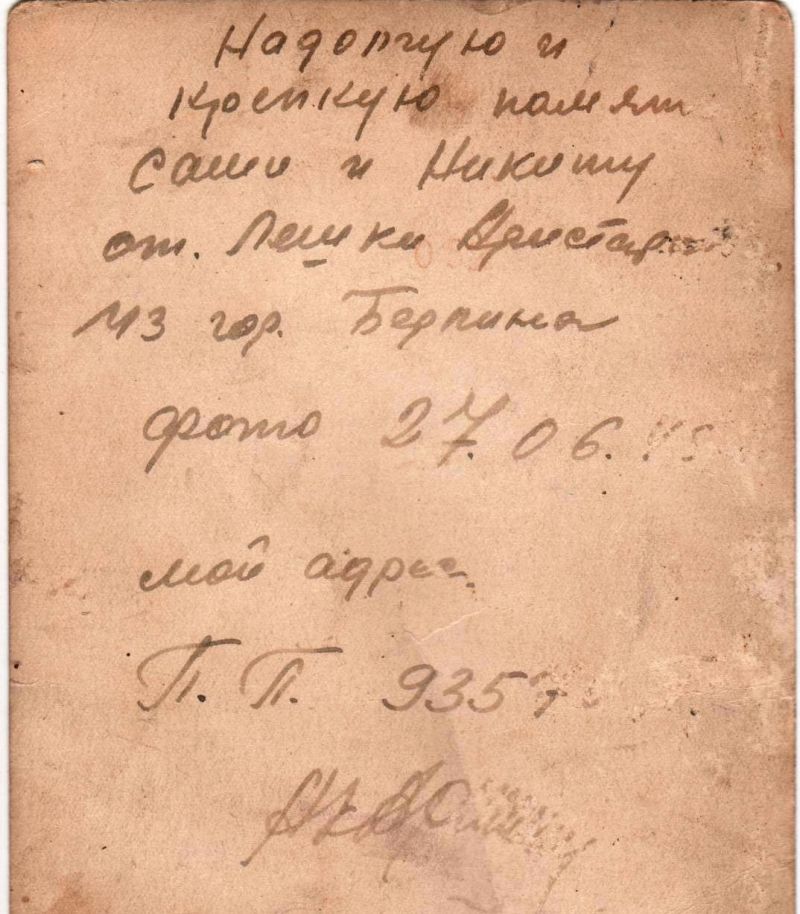 Надолгую и
крепкую память
Саши и Никиту
от. Лешки
из гор. Берлина
фото 27.06.45
мой адрес.
П. П. 9357